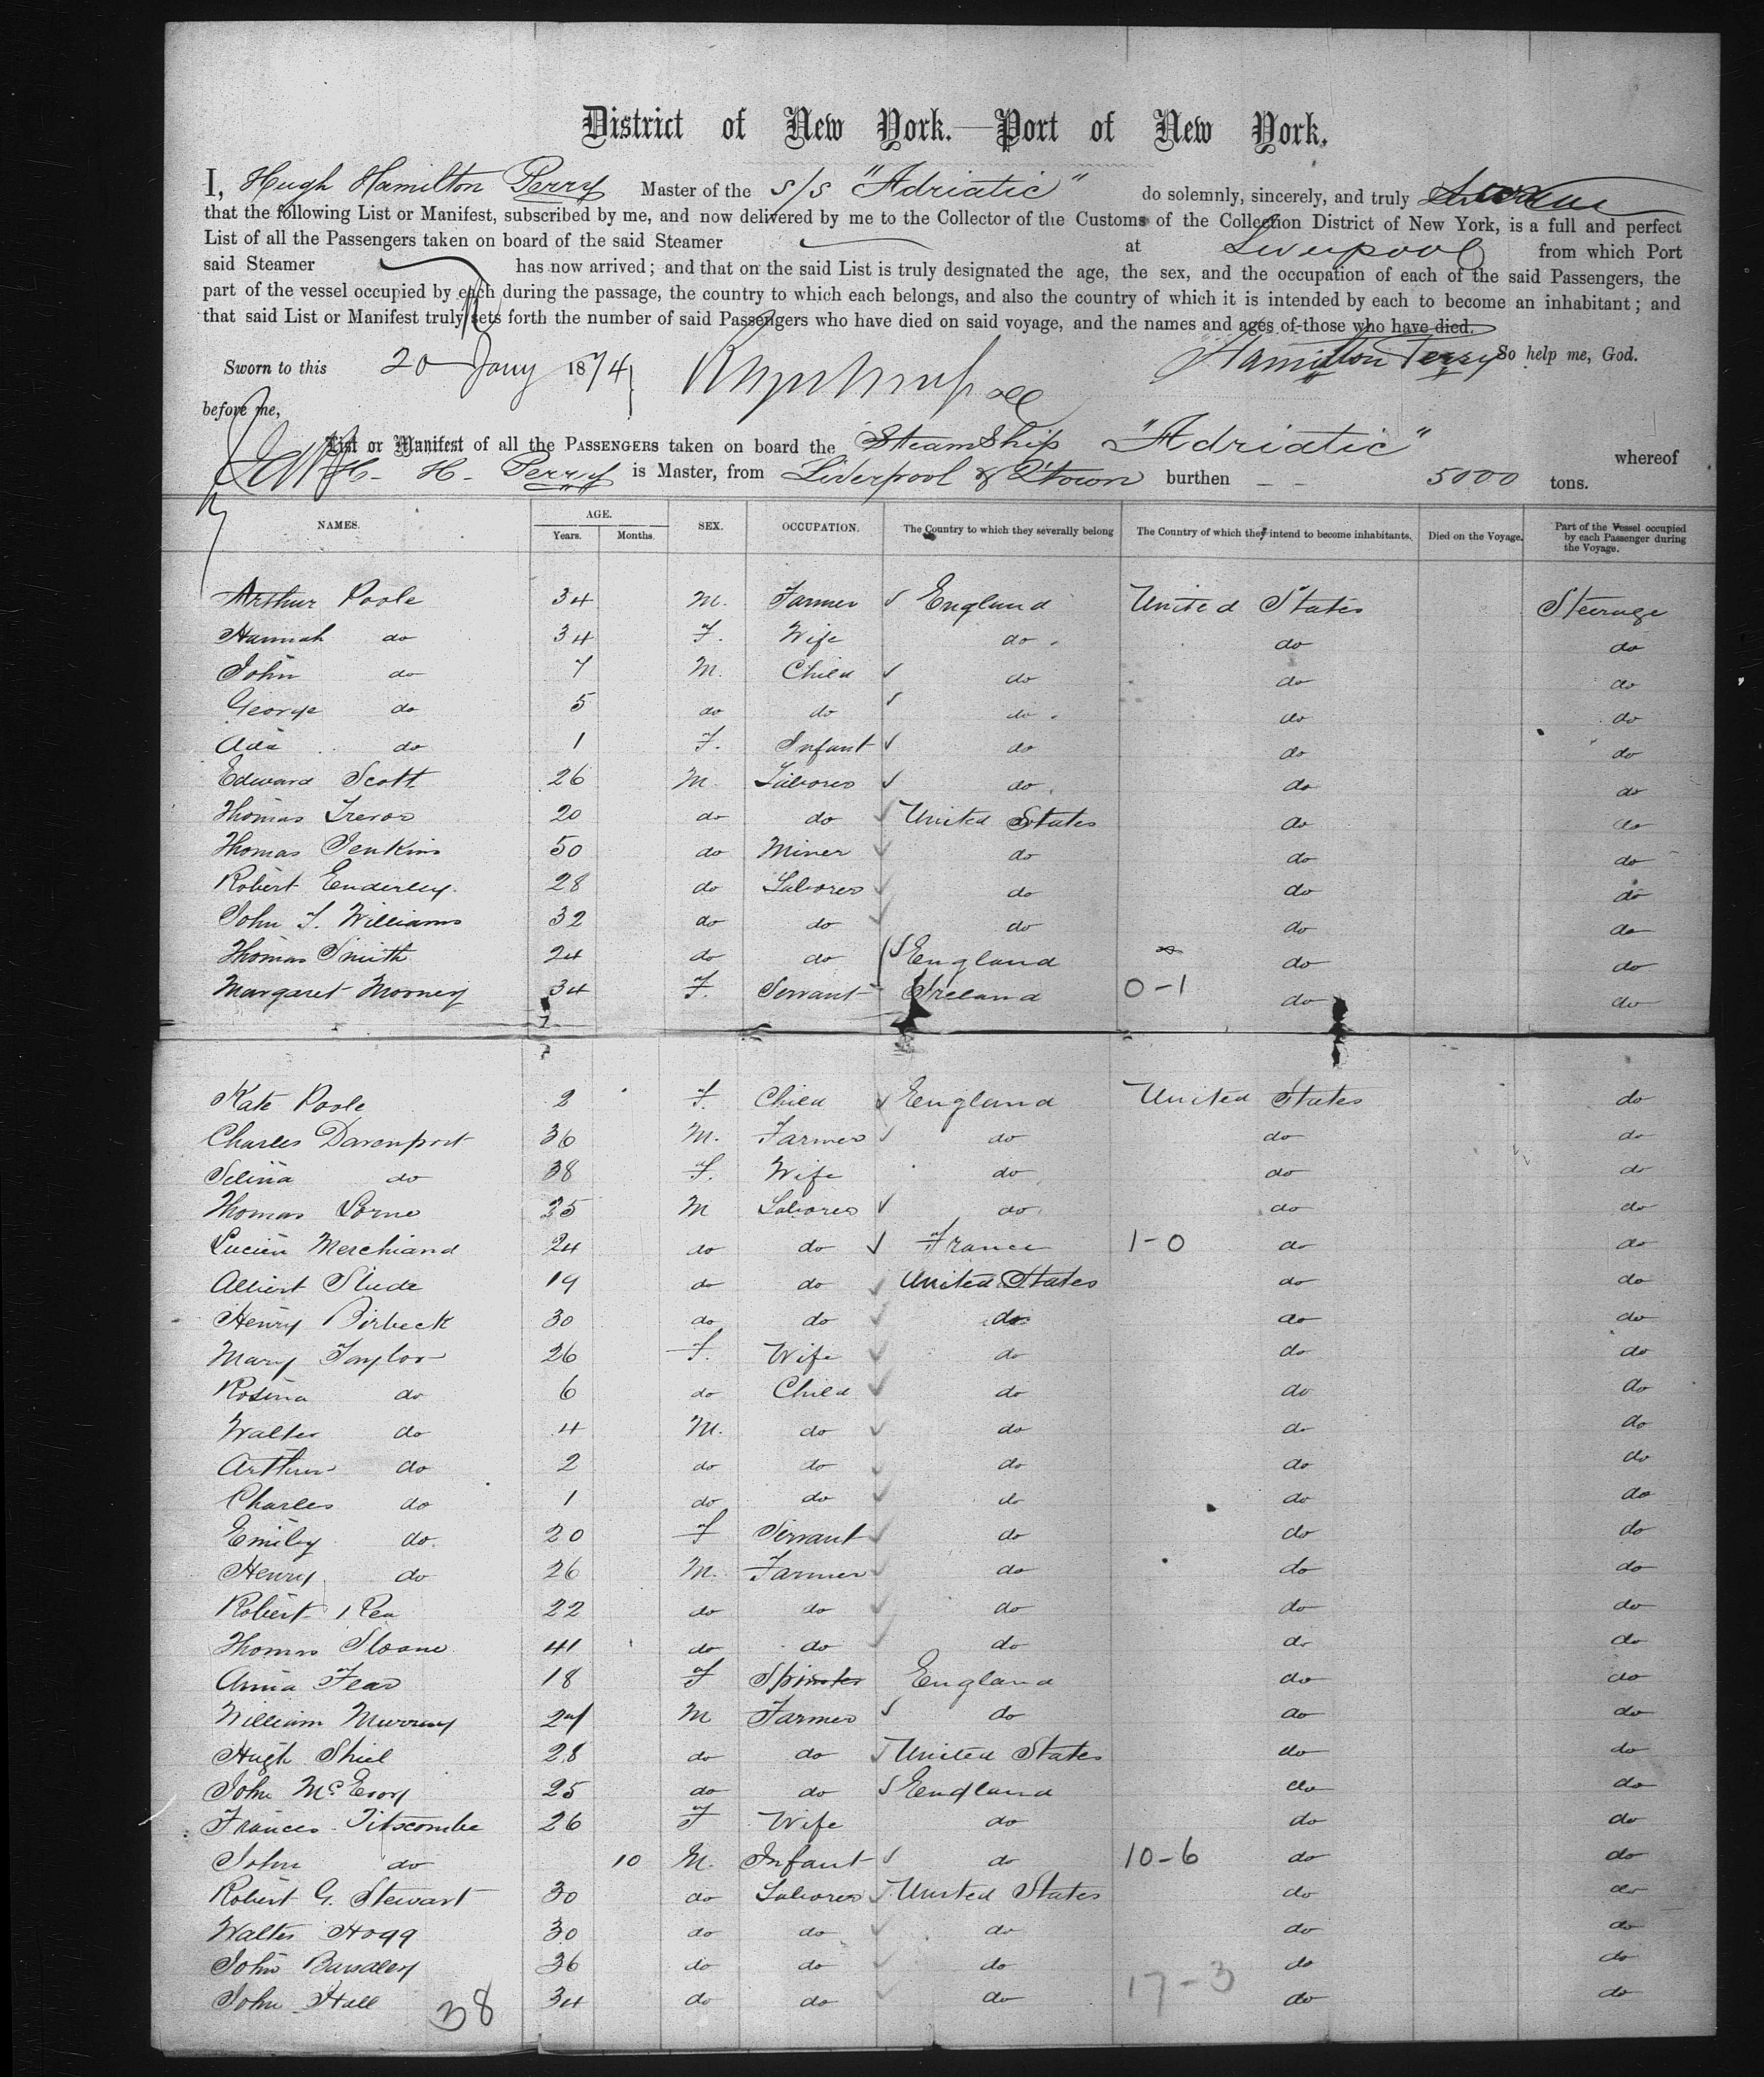 District of New York.—Port of New York.
I, Hugh Hamilton Perry Master of the s/s "Adriatic" do solemnly, sincerely, and truly
that the following List or Manifest, subscribed by me, and now delivered by me to the Collector of the Customs of the Collection District of New York, is a full and perfect
List of all the Passengers taken on board of the said Steamer at Liverpool from which Port
said Steamer has now arrived; and that on the said List is truly designated the age, the sex, and the occupation of each of the said Passengers, the
part of the vessel occupied by each during the passage, the country to which each belongs, and also the country of which it is intended by each to become an inhabitant; and
that said List or Manifest truly sets forth the number of said Passengers who have died on said voyage, and the names and ages of those who have died.
Sworn to this 20 Jany 1874 Hamilton Perry So help me, God.
before me,
List or Manifest of all the PASSENGERS taken on board the SteamShip "Adriatic" whereof
H. H. Perry is Master, from Liverpool & Q'town burthen – – 5000 tons.
NAMES. AGE. Years. Months. SEX. OCCUPATION. The Country to which they severally belong The Country of which they intend to become inhabitants. Died on the Voyage. Part of the Vessel occupied by each Passenger during the Voyage.
Arthur Poole 34 M. Farmer England United States Steerage
Hannah do 34 F. Wife do do do
John do 7 M. Child do do do
George do 5 do do do do do
Ada do 1 F. Infant do do do
Edward Scott 26 M. Laborer do do do
Thomas Trevor 20 do do United States do do
Thomas Jenkins 50 do Miner do do do
Robert Enderley 28 do Laborer do do do
John T. Williams 32 do do do do do
Thomas Smith 24 do do England do do
Margaret Morney 34 F. Servant Ireland 0-1 do do
Kate Poole 2 F. Child England United States do
Charles Davenport 36 M. Farmer do do do
Selina do 38 F. Wife do do do
Thomas Lorne 25 M Laborer do do do
Lucien Merchiand 24 do do France 1-0 do do
Albert Slude 19 do do United States do do
Henry Birbeck 30 do do do do do
Mary Taylor 26 F. Wife do do do
Rosina do 6 do Child do do do
Walter do 4 M. do do do do
Arthur do 2 do do do do do
Charles do 1 do do do do do
Emily do 20 F Servant do do do
Henry do 26 M. Farmer do do do
Robert Rea 22 do do do do do
Thomas Sloane 41 do do do do do
Anna Fear 18 F Spinster England do do
William Murray 24 M Farmer do do do
Hugh Shiel 28 do do United States do do
John McEvoy 25 do do England do do
Frances Titscombe 26 F Wife do do do
John do 10 M. Infant do 10-6 do do
Robert G. Stewart 30 do Laborer United States do do
Walter Hogg 30 do do do do do
John Bardley 36 do do do do do
John Hall 34 do do do 17-3 do do
38